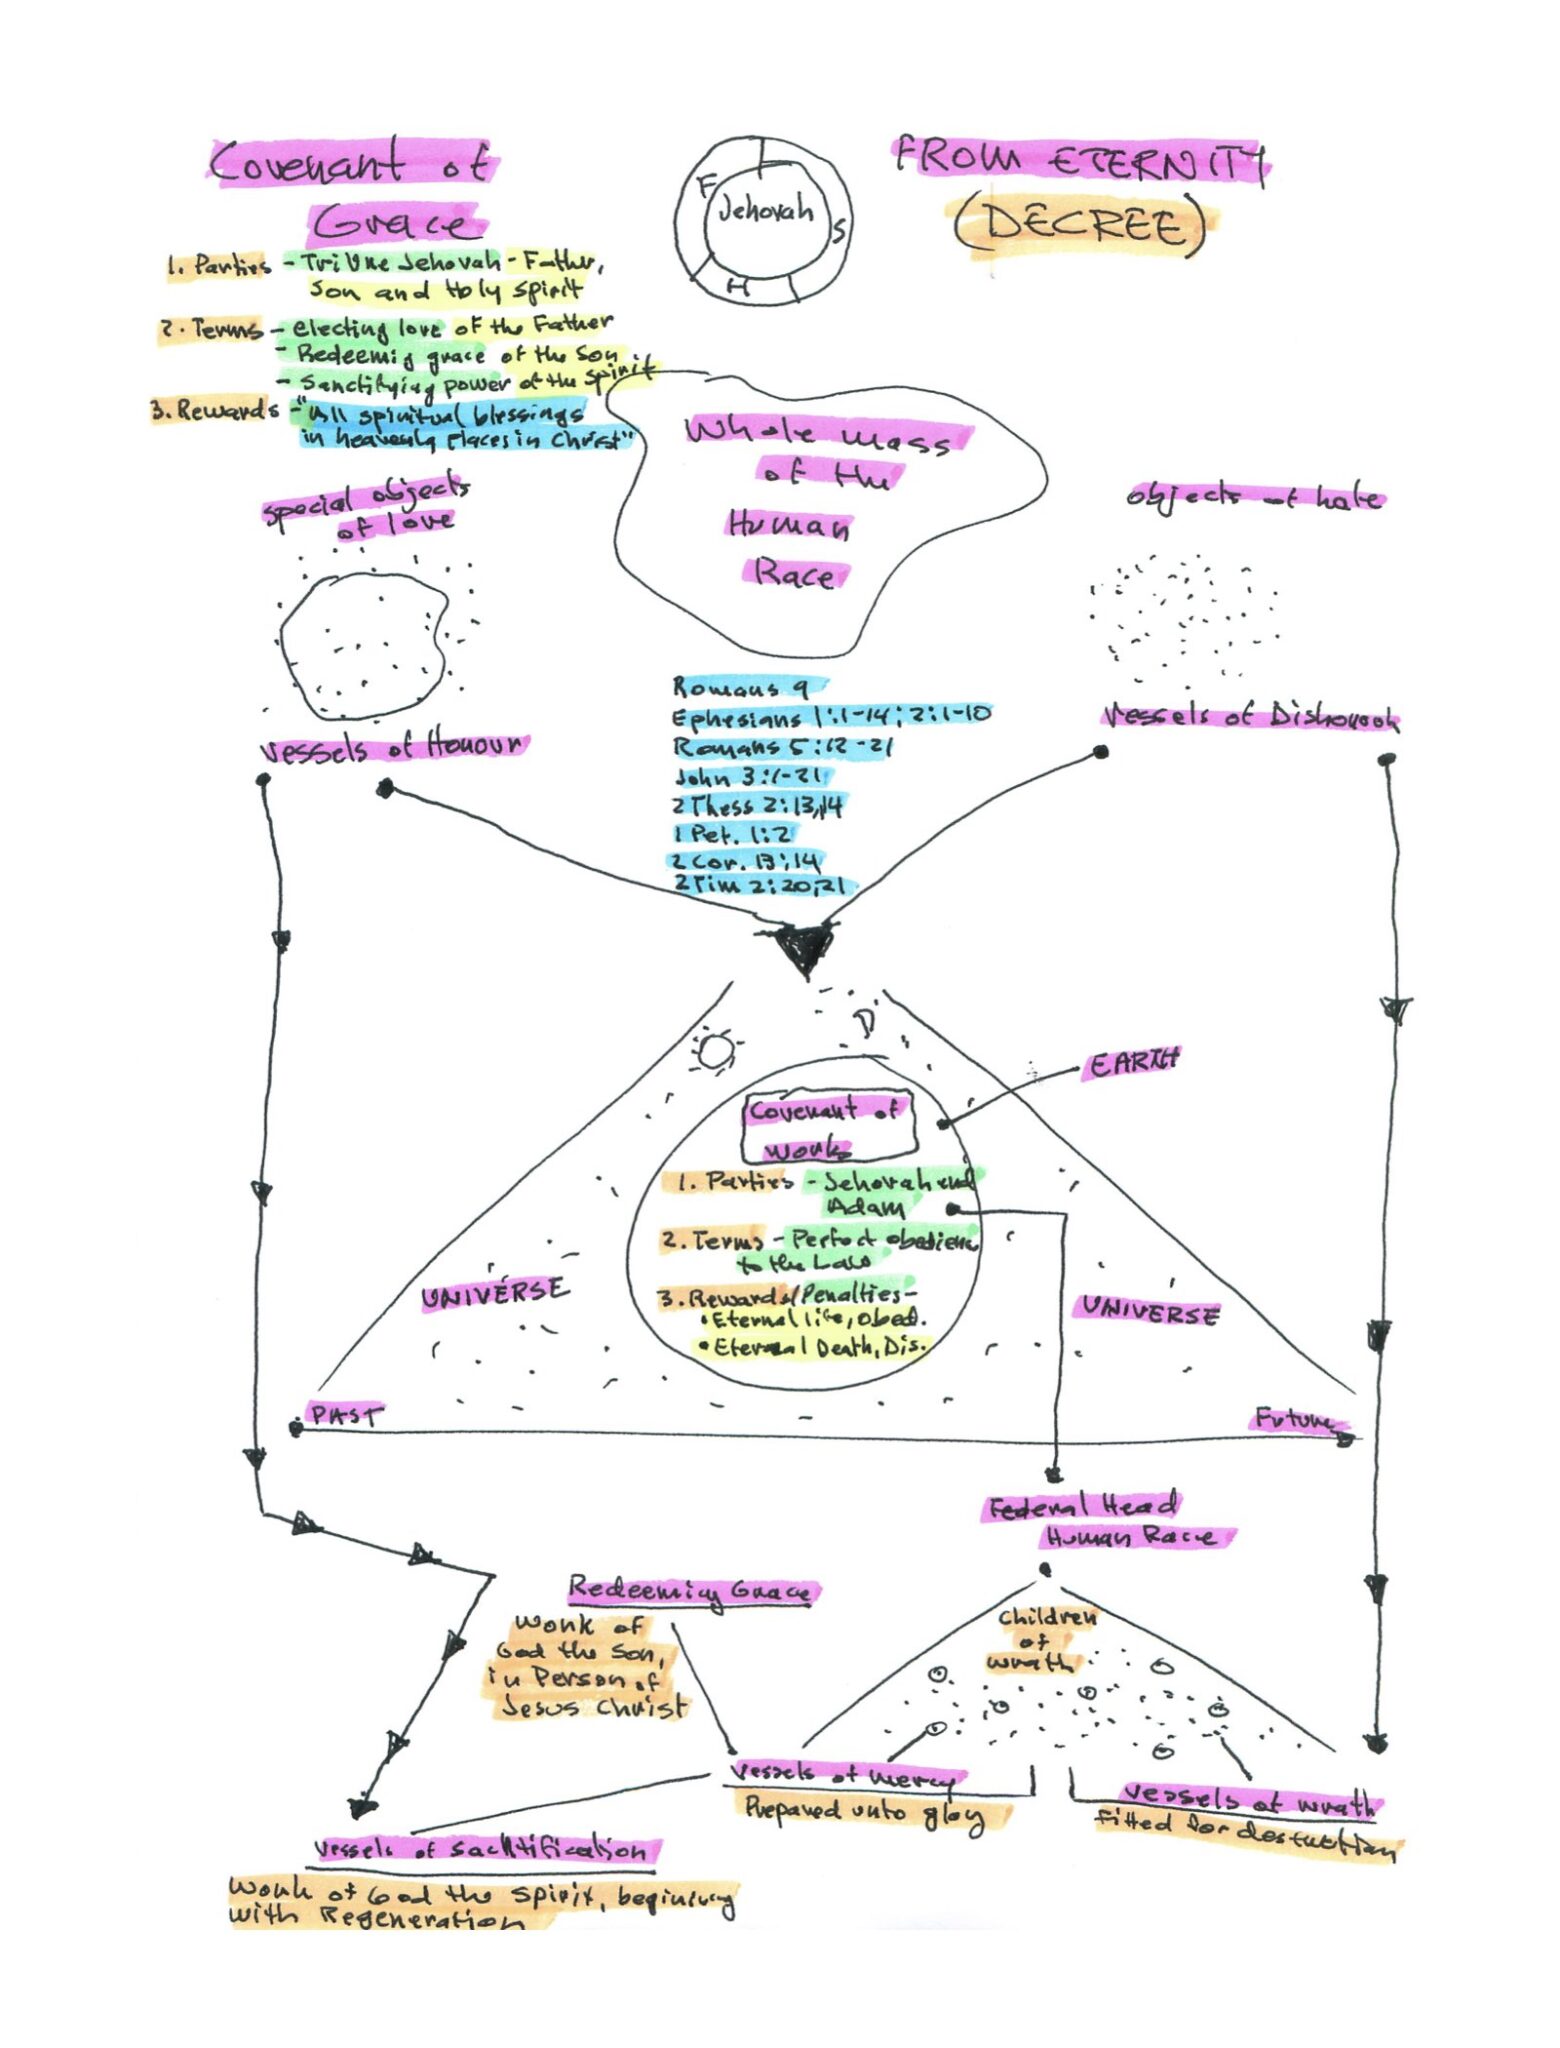 Covenant of
Grace
1. Parties - TriUne Jehovah - Father,
Son and Holy Spirit
2. Terms - electing love of the Father
- Redeemig grace of the Son
- Sanctifying power of the Spirit
3. Rewards - "All spiritual blessings
in heavenly places in Christ"
F
Jehovah
S
H
FROM ETERNITY
(DECREE)
Whole mass
of the
Human
Race
Special objects
of love
objects of hate
Vessels of Honour
Vessels of
Romans 9
Ephesians 1:1-14; 2:1-10
Romans 5:12-21
John 3:1-21
2 Thess 2:13,14
1 Pet. 1:2
2 Cor. 13:14
2 Tim 2:20,21
EARTH
Covenant of
Works
1. Parties - Jehovah and
Adam
2. Terms - Perfect obedienc
to the Law
3. Rewards/Penalties -
• Eternal life, Obed.
• Eternal Death, Dis.
UNIVERSE
UNIVERSE
PAST
Future
Federal Head
Human Race
Redeeming Grace
Work of
God the Son,
in Person of
Jesus Christ
Children
of
wrath
Vessels of mercy
Prepared unto gloy
Vessels of wrath
Fitted for
Vessels of
Work of God the Spirit, begining
with Regeneration